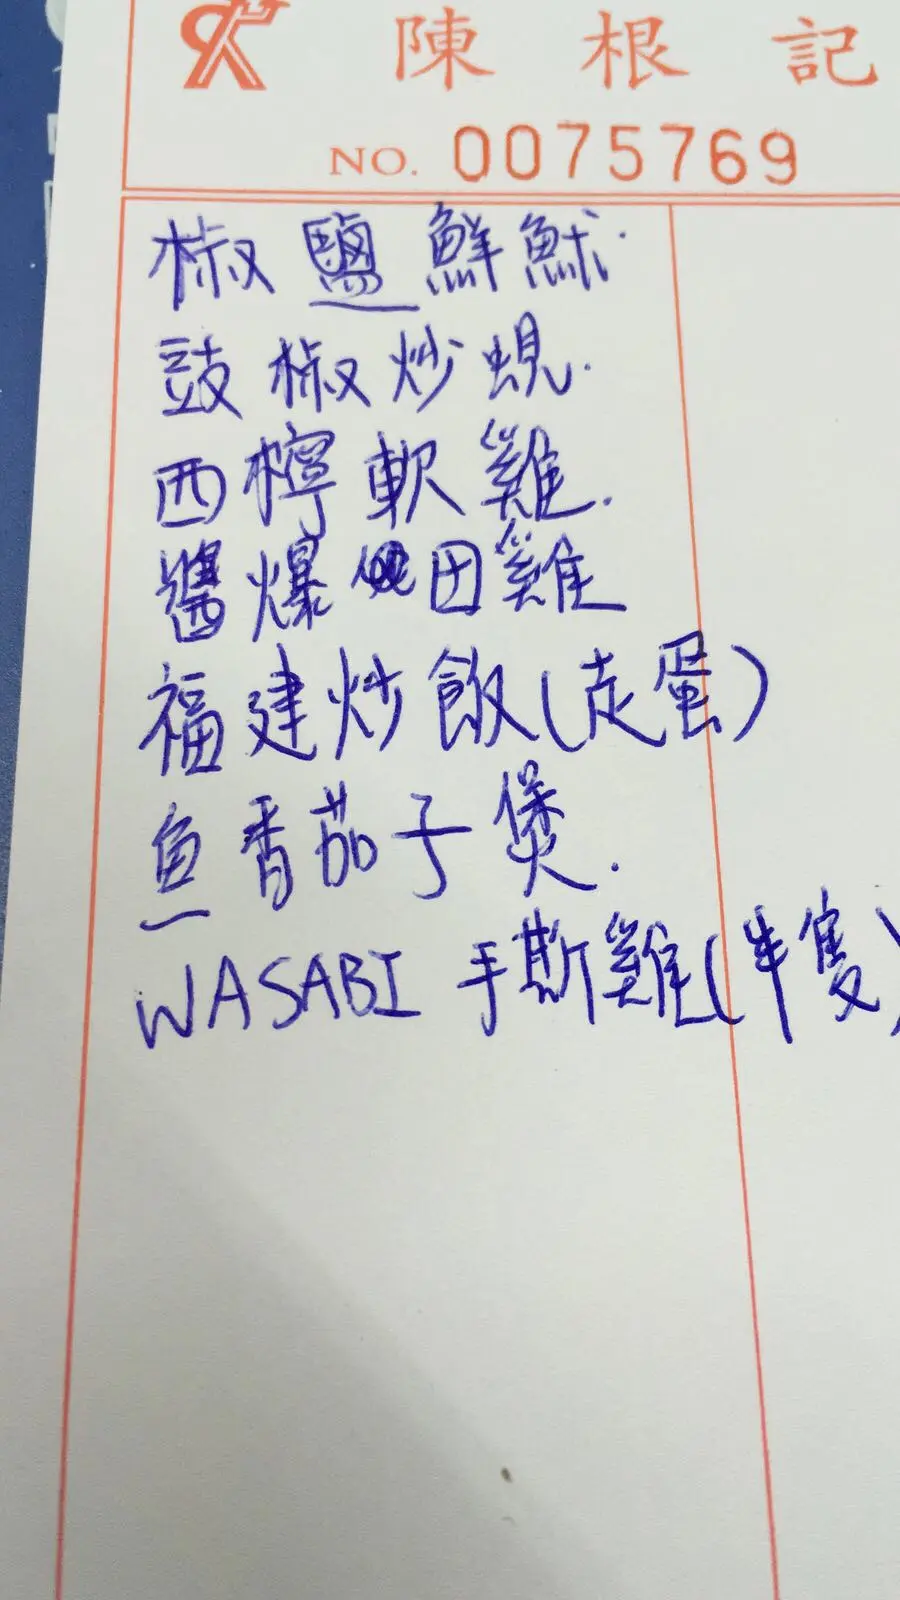 陳根記
NO. 0075769
椒鹽鮮魷
鼓椒炒蜆
西檸軟雞
醬爆田雞
福建炒飯(走蛋)
魚香茄子煲
WASABI 手撕雞(半隻)